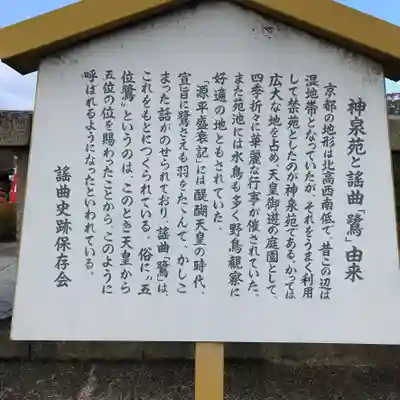 神泉苑と謡曲「鷺」由来
京都の地形は北高西南低で、昔この辺は
湿地帯となっていたが、それをうまく利用
して禁苑としたのが神泉苑である。かっては
広大な地を占め、天皇御遊の庭園として、
四季折々に華麗な行事が催されていた。
また苑池には水鳥も多く野鳥観察に
好適の地ともされていた。
「源平盛衰記」には醍醐天皇の時代、
宣旨に鷺さえも羽をたゝんで、かしこ
まった話がのせられており、謡曲「鷺」は、
これをもとにつくられている。俗に〝五
位鷺〟というのは、このとき天皇から
五位の位を賜わったことから、このように
呼ばれるようになったといわれている。
謡曲史跡保存会